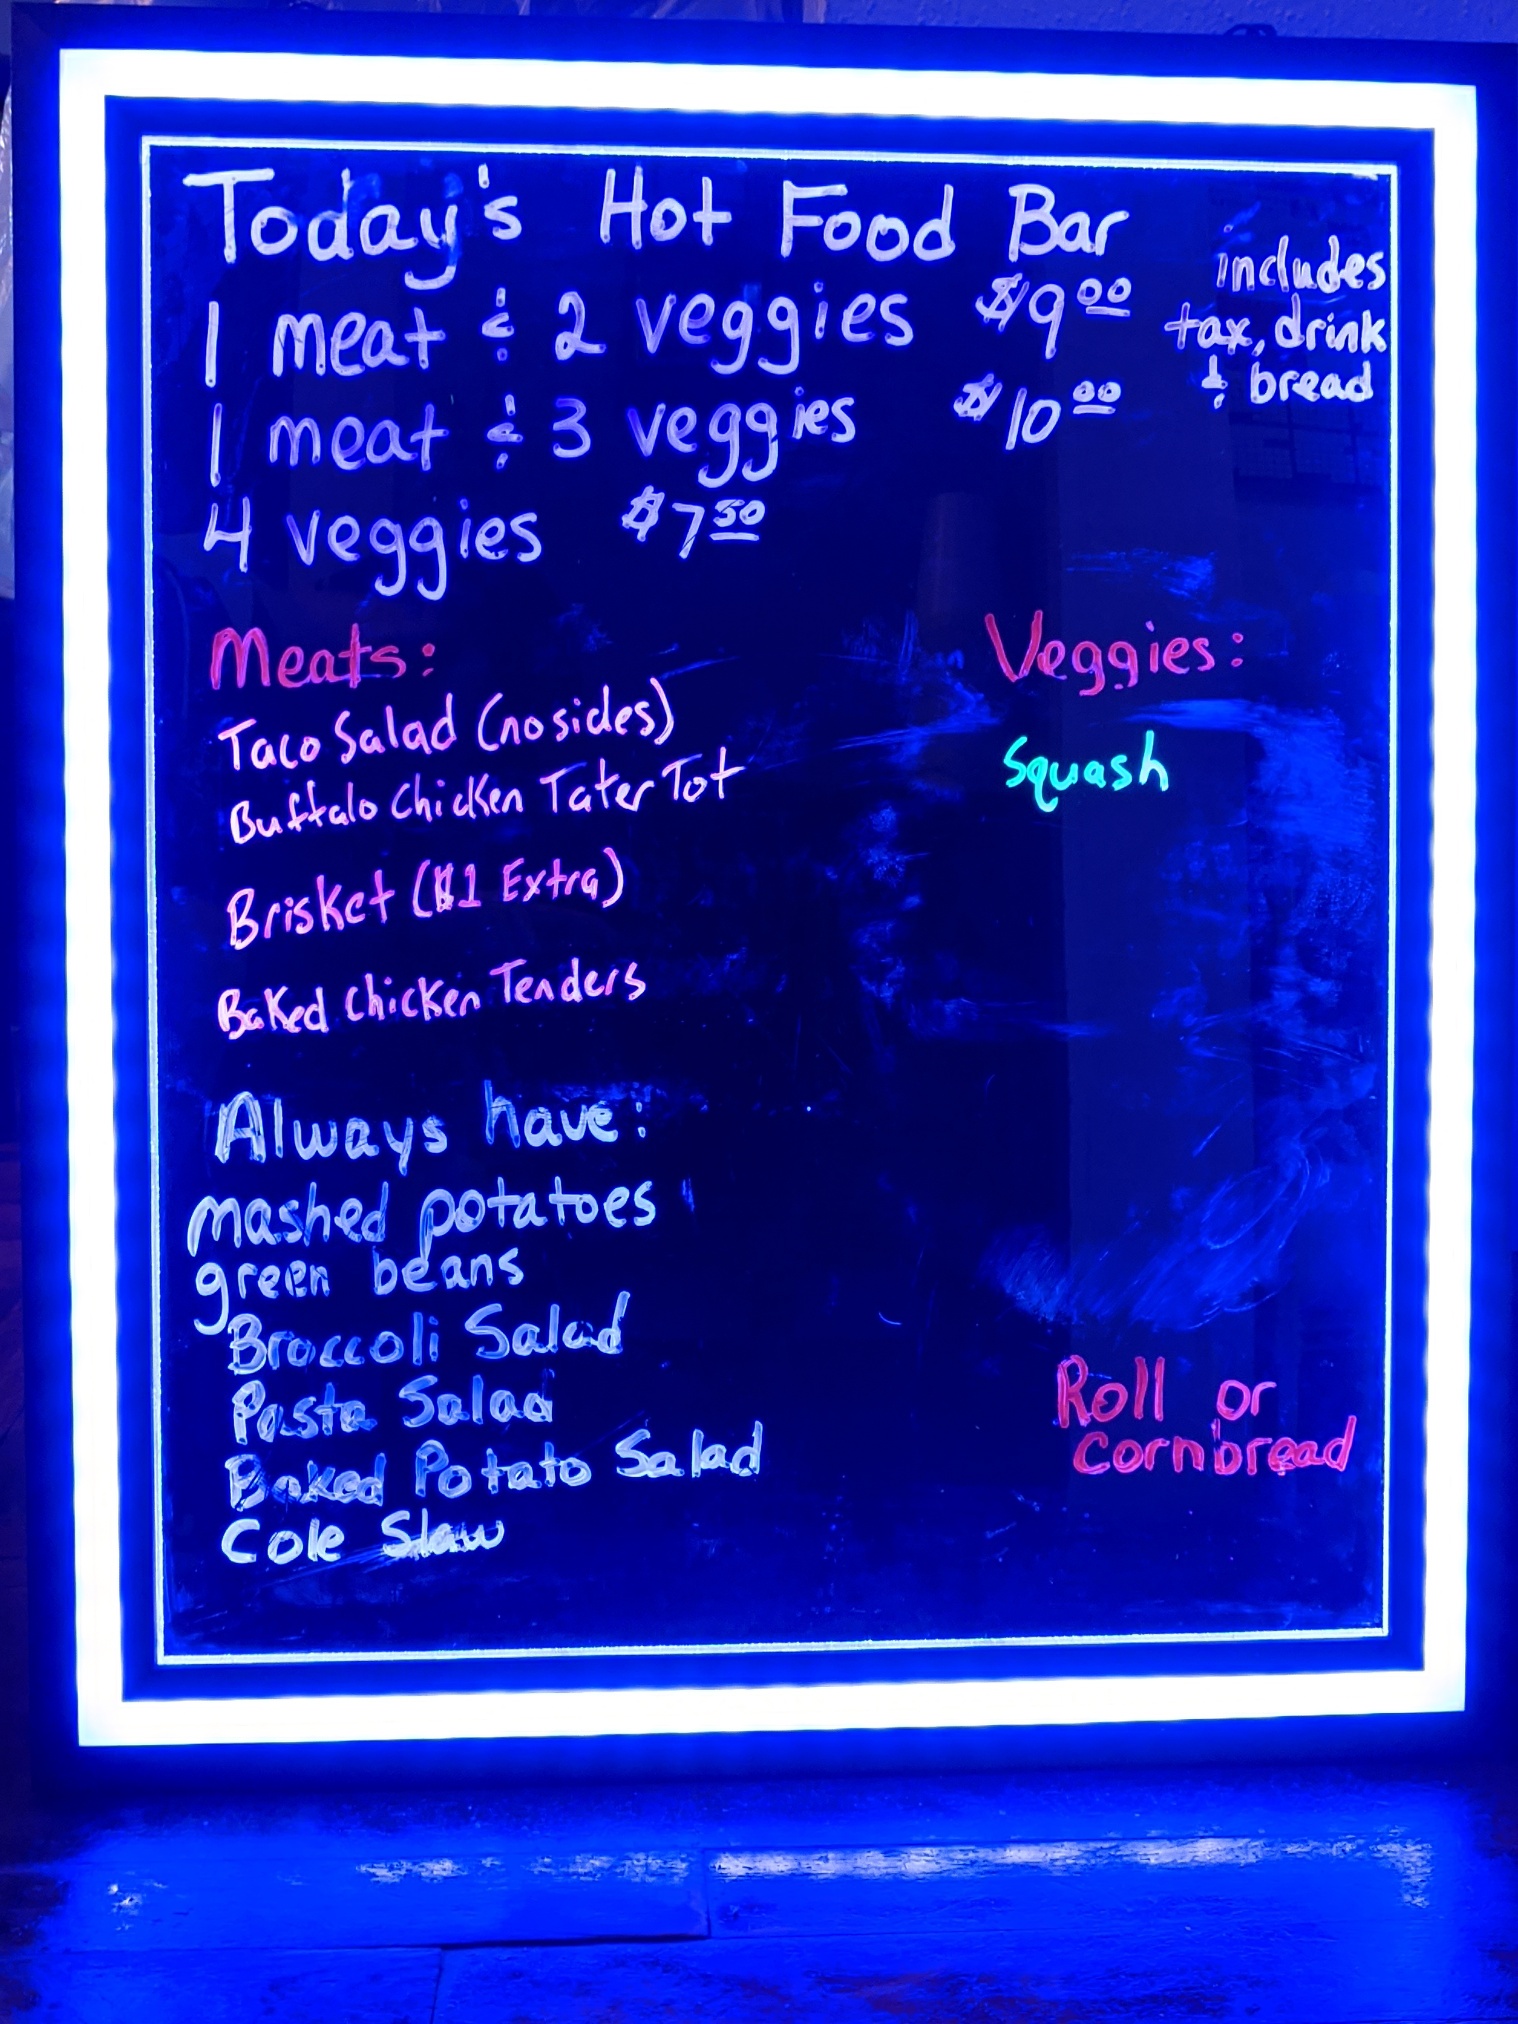 Today's Hot Food Bar
1 meat & 2 veggies $9.00
includes
tax, drink
& bread
1 meat & 3 veggies $10.00
4 veggies $7.50
Meats:
Taco Salad (no sides)
Buffalo Chicken Tater Tot
Brisket ($1 Extra)
Baked Chicken Tenders
Veggies:
Squash
Always have:
mashed potatoes
green beans
Broccoli Salad
Pasta Salad
Baked Potato Salad
Cole Slaw
Roll or
cornbread